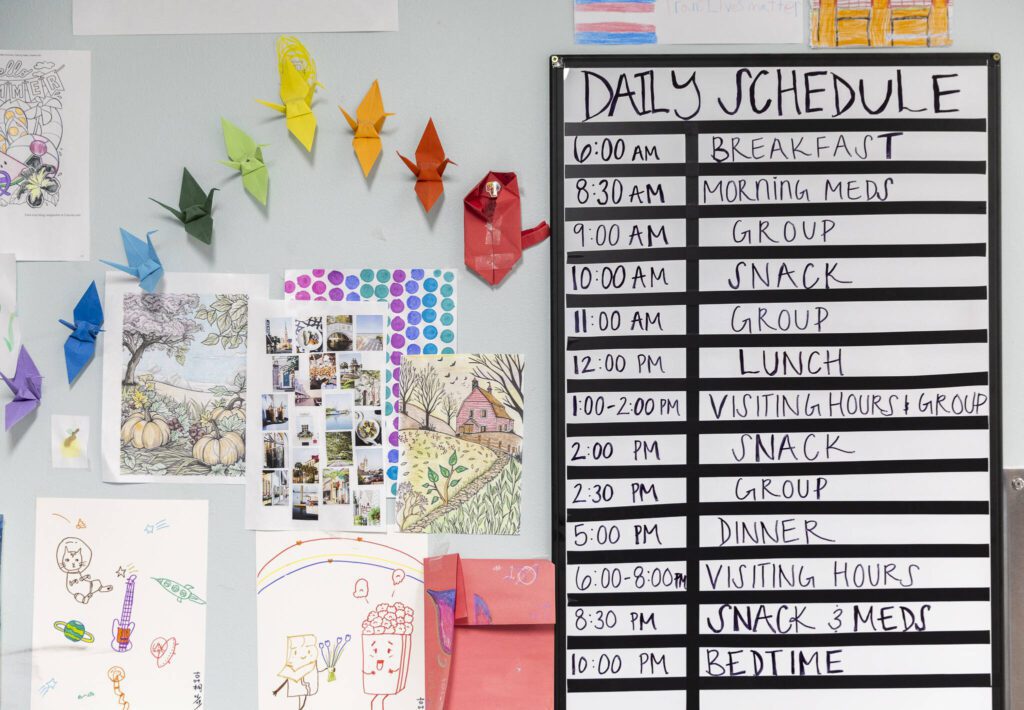 Hello
SUMMER
Trans Lives matter
DAILY SCHEDULE
6:00 AM BREAKFAST
8:30 AM MORNING MEDS
9:00 AM GROUP
10:00 AM SNACK
11:00 AM GROUP
12:00 PM LUNCH
1:00-2:00 PM VISITING HOURS & GROUP
2:00 PM SNACK
2:30 PM GROUP
5:00 PM DINNER
6:00-8:00 PM VISITING HOURS
8:30 PM SNACK & MEDS
10:00 PM BEDTIME